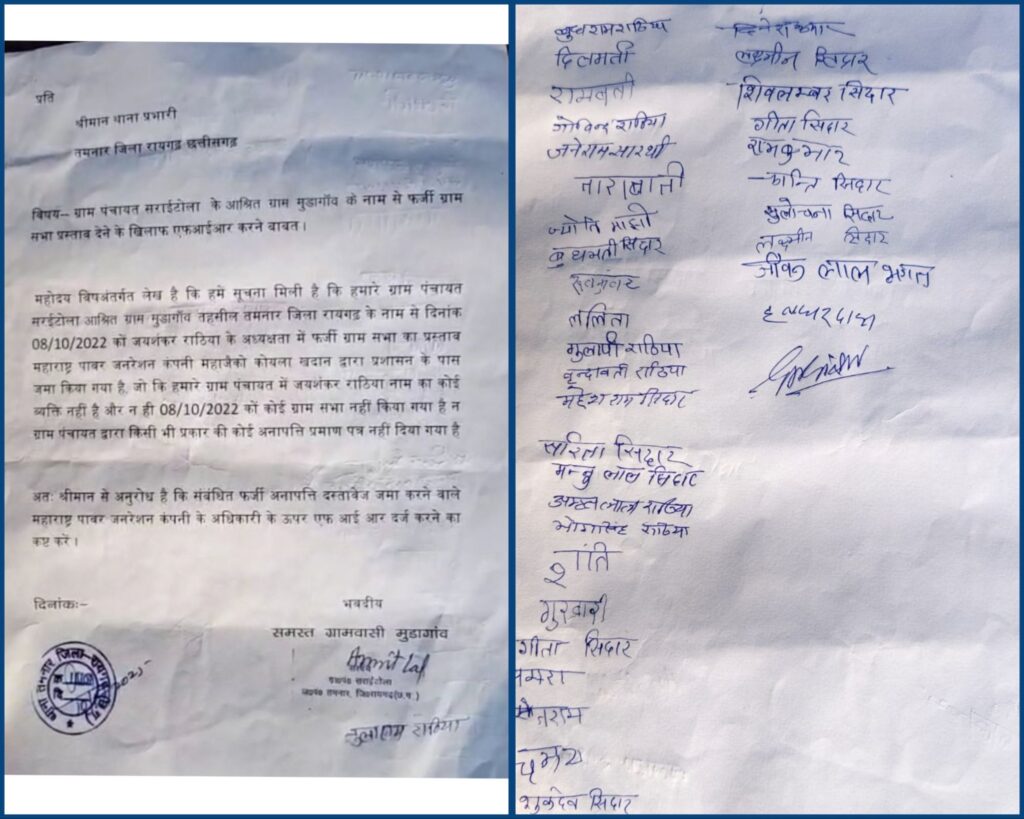 प्रति
श्रीमान थाना प्रभारी
तमनार जिला रायगढ़ छत्तीसगढ़
विषय– ग्राम पंचायत सराईटोला के आश्रित ग्राम मुडागाँव के नाम से फर्जी ग्राम
सभा प्रस्ताव देने के खिलाफ एफआईआर करने बाबत।
महोदय विषअंतर्गत लेख है कि हमे सूचना मिली है कि हमारे ग्राम पंचायत
सरईटोला आश्रित ग्राम मुडागाँव तहसील तमनार जिला रायगढ़ के नाम से दिनांक
08/10/2022 को जयशंकर राठिया के अध्यक्षता में फर्जी ग्राम सभा का प्रस्ताव
महाराष्ट्र पावर जनरेशन कंपनी महाजेंको कोयला खदान द्वारा प्रशासन के पास
जमा किया गया है, जो कि हमारे ग्राम पंचायत में जयशंकर राठिया नाम का कोई
व्यक्ति नहीं है और न ही 08/10/2022 कों कोई ग्राम सभा नहीं किया गया है न
ग्राम पंचायत द्वारा किसी भी प्रकार की कोई अनापत्ति प्रमाण पत्र नहीं दिया गया है
अतः श्रीमान से अनुरोध है कि संबंधित फर्जी अनापत्ति दस्तावेज जमा करने वाले
महाराष्ट्र पावर जनरेशन कंपनी के अधिकारी के ऊपर एफ आई आर दर्ज करने का
कष्ट करें।
दिनांकः–
भवदीय
समस्त ग्रामवासी मुडागाँव
Amrit Lal
ग्रा०पं० सराईटोला
ज०पं० तमनार, जि०रायगढ़(छ.ग.)
थाना तमनार जिला-रायगढ़
2025
तुलाराम राठिया
दिलमती
रामबती
गोविन्द राठिया
जनेराम सारथी
ताराबाती
ज्योति माझी
बुधमती सिदार
ललिता
गुलापी राठिया
वृन्दावती राठिया
महेश राम सिदार
सरिता सिदार
लाल सिदार
राठिया
शांति
गुरबारी
गीता सिदार
शुकदेव सिदार
दिनेश कुमार
लक्ष्मीन सिदार
शिवलम्बर सिदार
गीता सिदार
रामकुमार
कान्ति सिदार
सुलोचना सिदार
लक्ष्मीन सिदार
जीवन लाल भगत